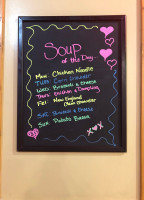 Soup
of the Day...
Mon: Chicken Noodle
Tues: Corn Chowder
Wed: Broccoli & Cheese
Thurs: Chicken & Dumpling
Fri: New England
Clam Chowder
Sat: Broccoli & Cheese
Sun: Potato Bacon